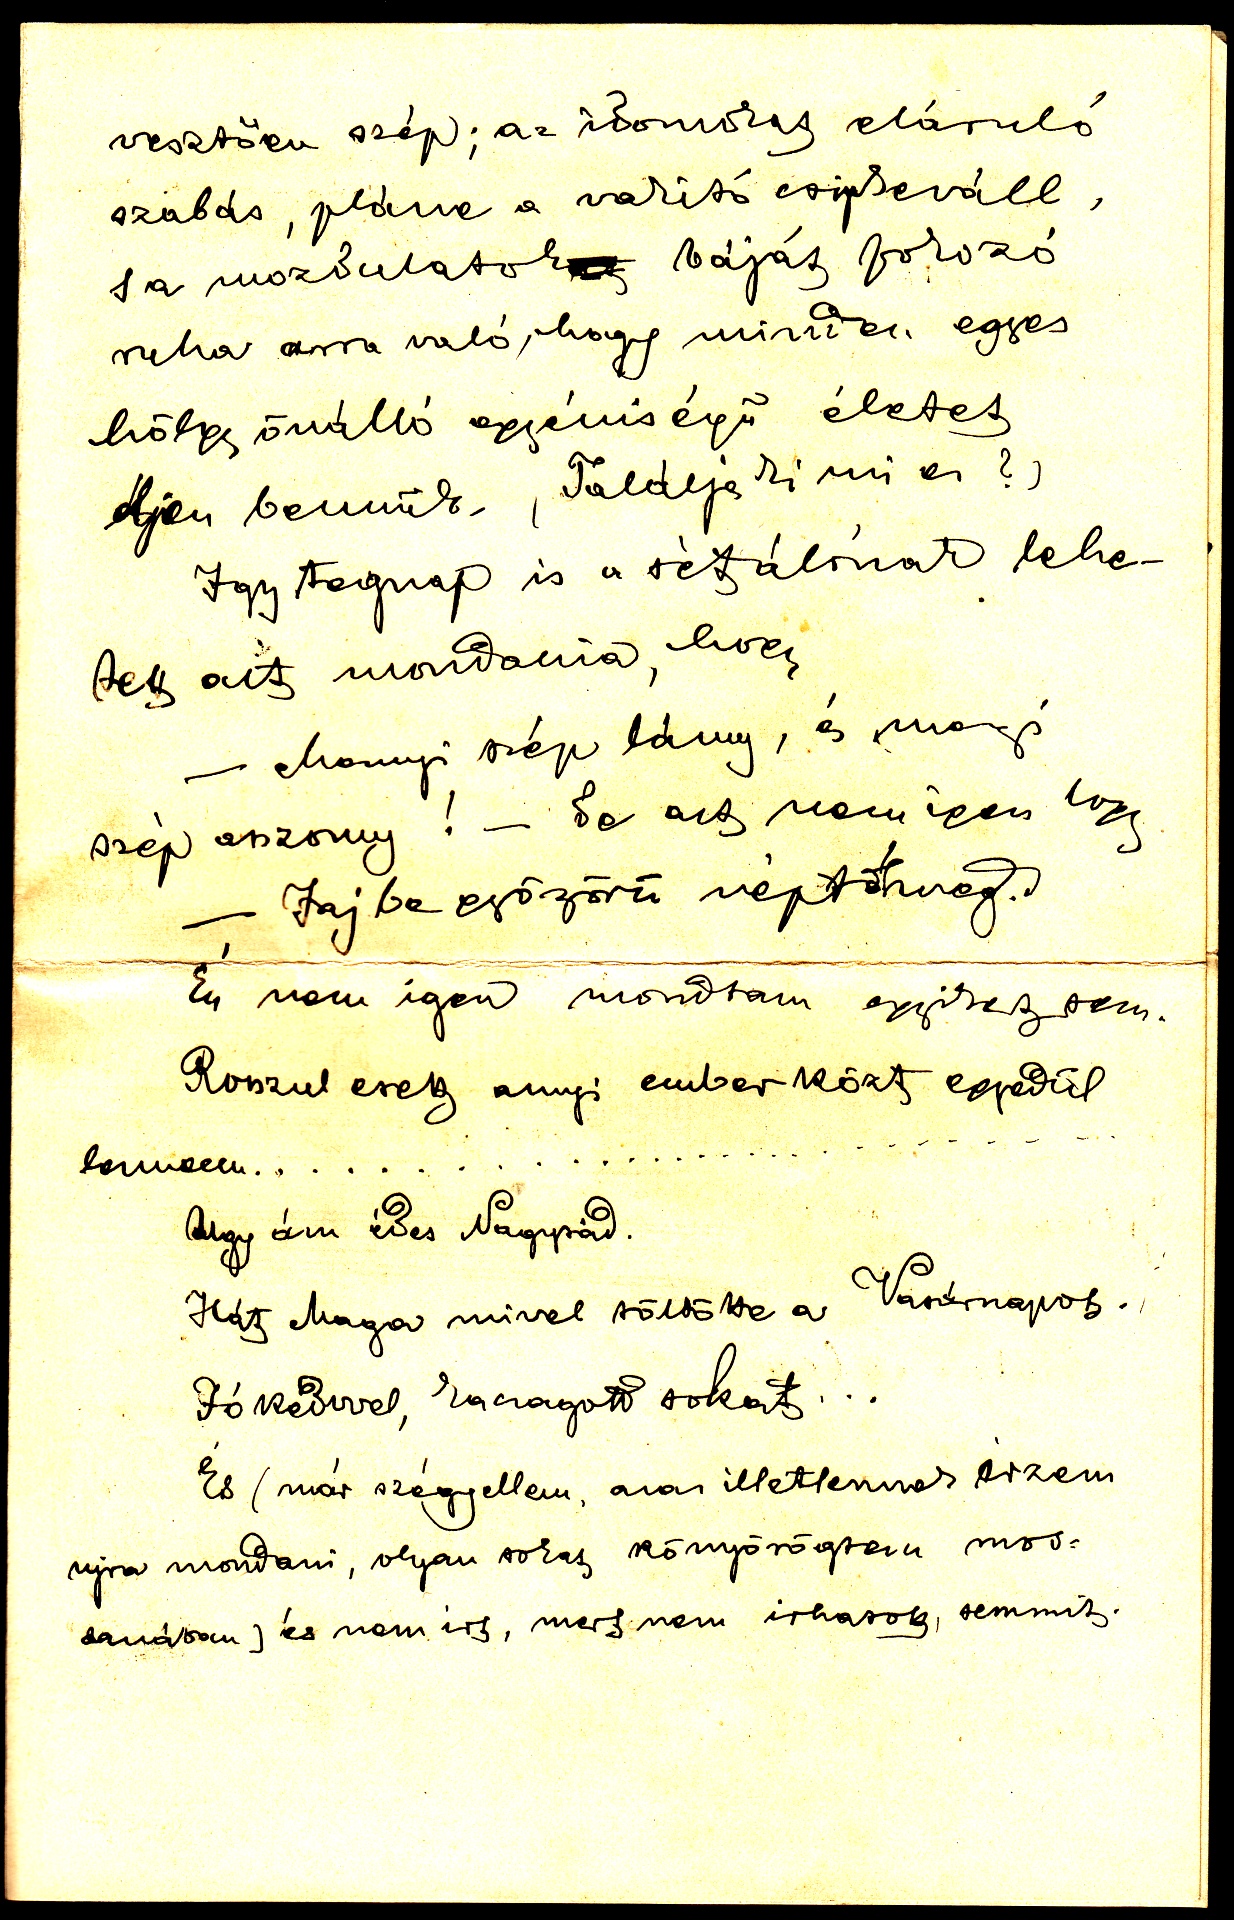 vesztően szép; az idomokat eláruló
szabás, pláne a vakító csipkeváll,
s a mozdulatok báját fokozó
ruha arra való, hogy minden egyes
hölgy önálló egyéniségű életet
éljen bennük. (Találja ki mi ez?)
Igy tegnap is a sétálónak lehe-
tett azt mondania, hogy
— Mennyi szép lány, és mennyi
szép asszony! — De azt nem igen hogy
— Jaj be gyönyörű néptömeg.
Én nem igen mondtam egyiket sem.
Rosszul esett annyi ember közt egyedül
lennem. . . . . . . . . . . . . . . . . . . . . .
Ugy ám édes Nagysád.
Hát Maga mivel töltötte a Vasárnapot.
Jó kedvvel, kacagott sokat . . .
És (már szégyellem, azaz illetlennek érzem
ujra mondani, olyan sokat könyörögtem mos-
tanában) és nem irt, mert nem irhatott, semmit.